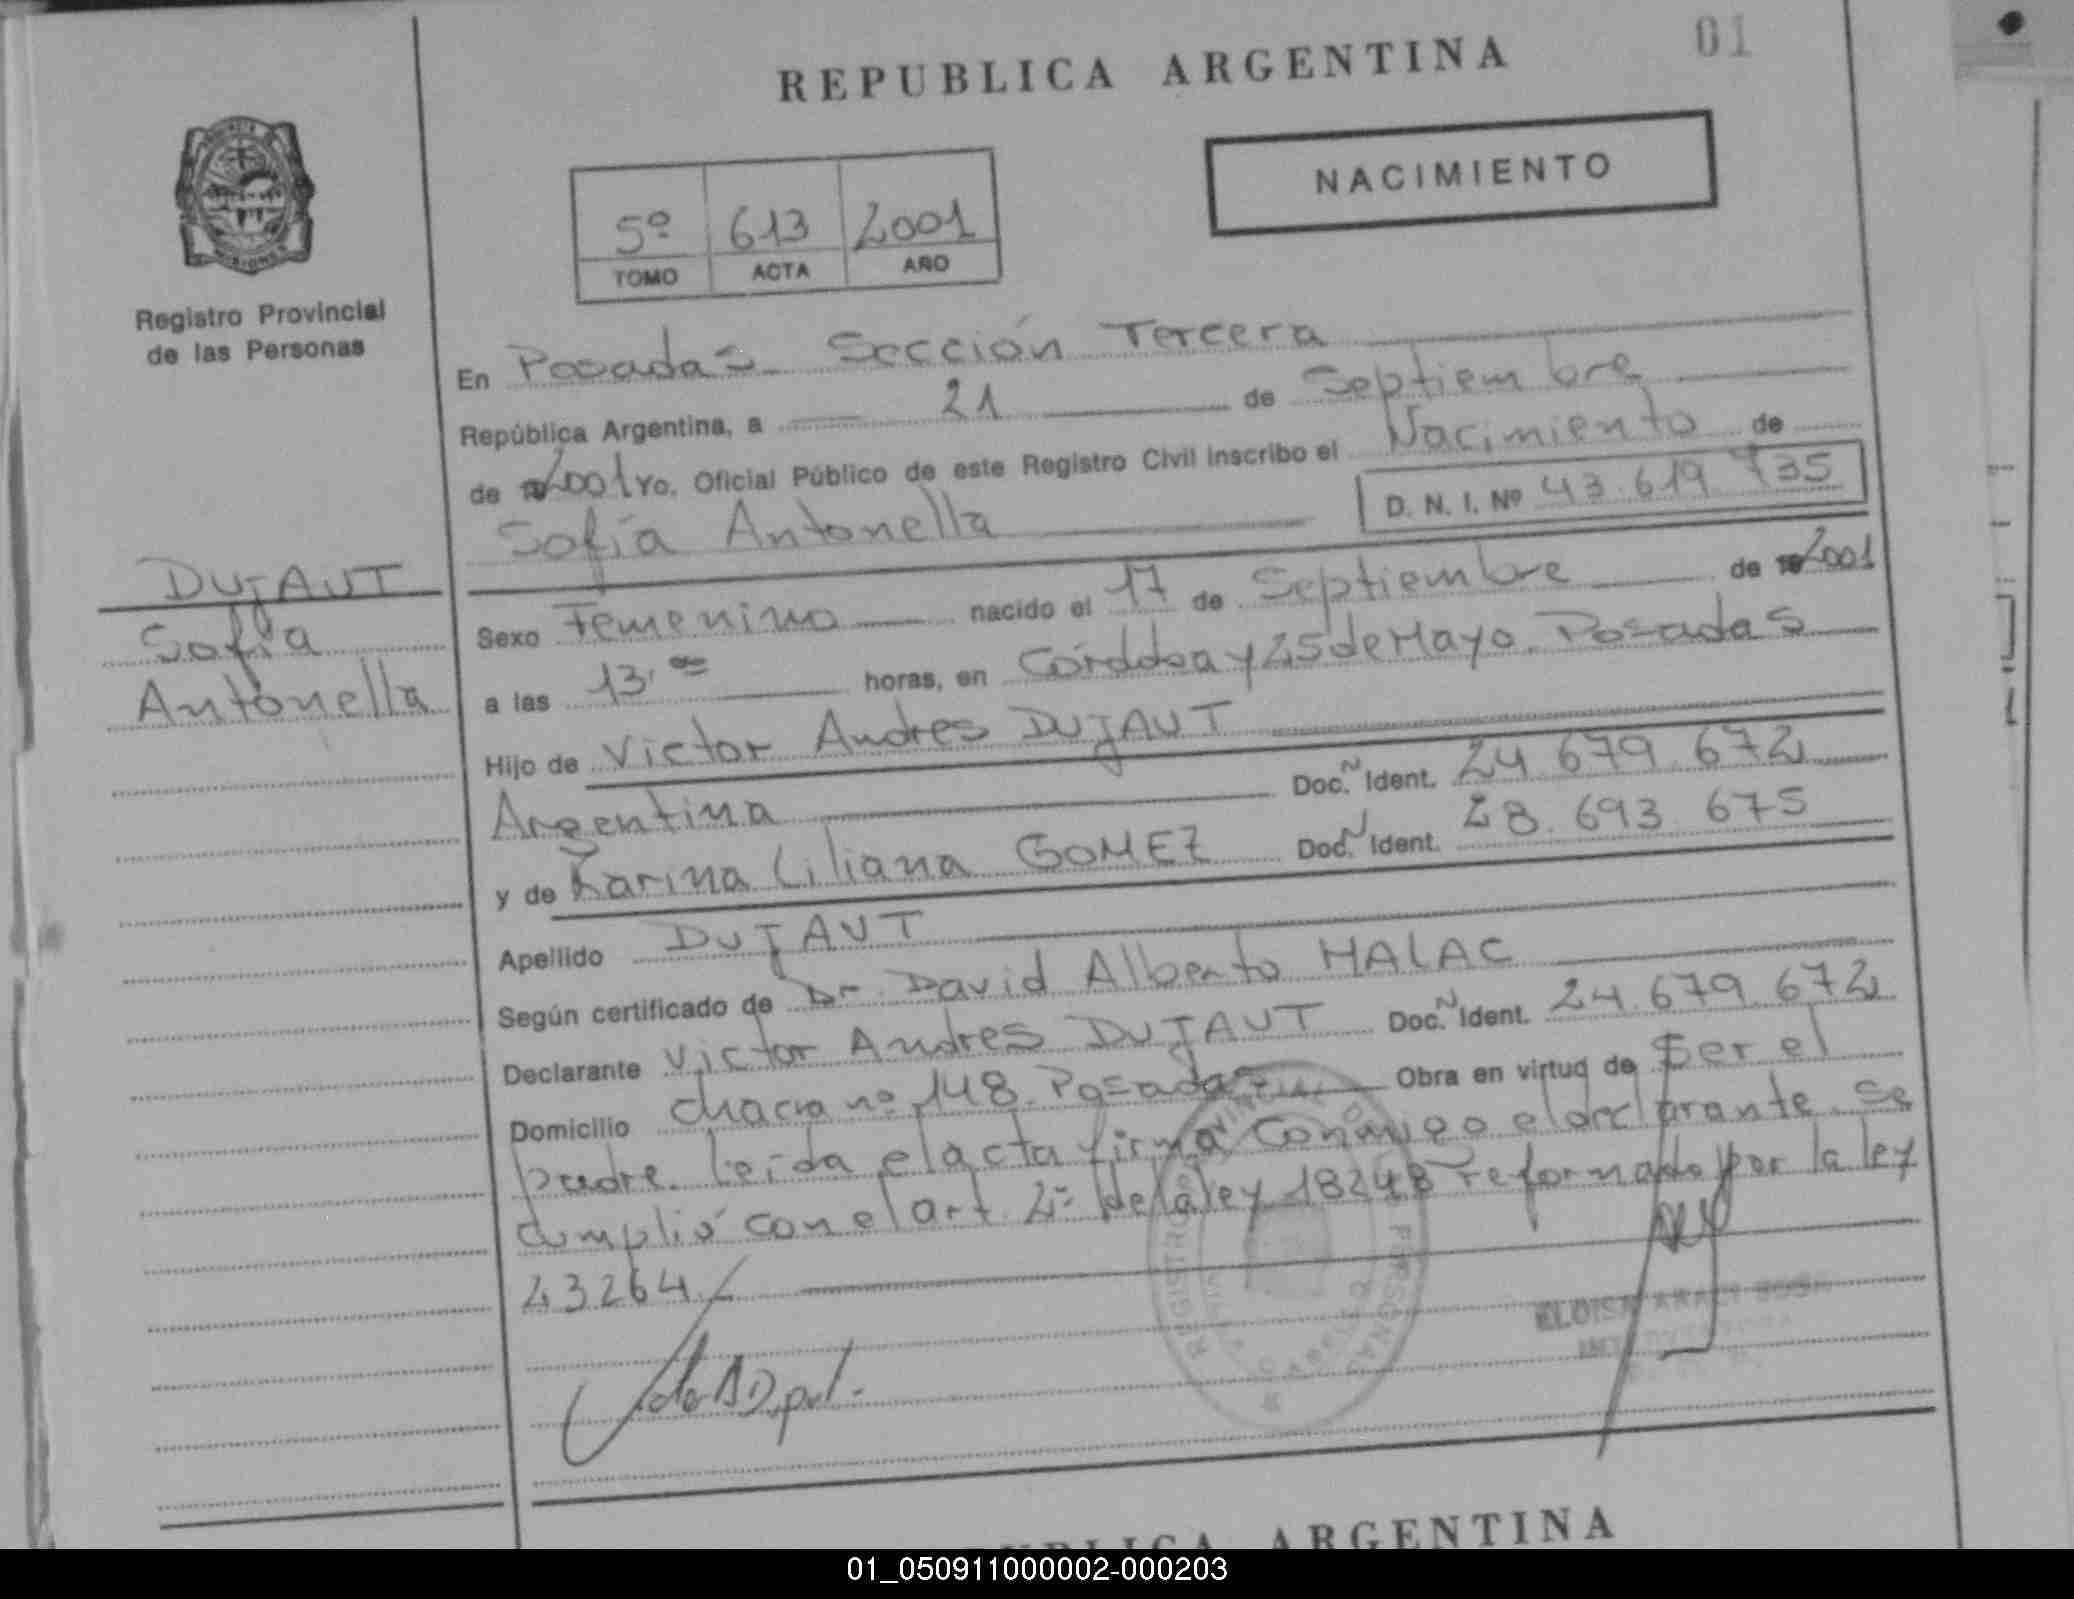 REPUBLICA ARGENTINA
01
NACIMIENTO
5º 613 2001
TOMO ACTA AÑO
Registro Provincial
de las Personas
En Posadas Sección Tercera
República Argentina, a 21 de Septiembre
de 2001 Yo, Oficial Público de este Registro Civil inscribo el Nacimiento de
Sofía Antonella D. N. I. Nº 43.619.735
DUJAUT
Sofía
Antonella
Sexo Femenino nacido el 17 de Septiembre de 2001
a las 13,00 horas, en Córdoba y 25 de Mayo. Posadas
Hijo de Victor Andres DUJAUT
Argentina Doc. N Ident. 24 679 672
y de Karina Liliana GOMEZ Doc. N Ident. 28.693 675
Apellido DUJAUT
Según certificado de Dr. David Alberto MALAC
Declarante Victor Andres DUJAUT Doc. N Ident. 24.679.672
Domicilio chacra nº 148. Posadas Obra en virtud de Ser el
padre. Leída el acta firma conmigo el declarante. Se
cumplió con el art. 2º de la ley 18248 reformado por la ley
23264
REGISTRO
PERSONAS
ELOISA
REPUBLICA ARGENTINA
01_050911000002-000203